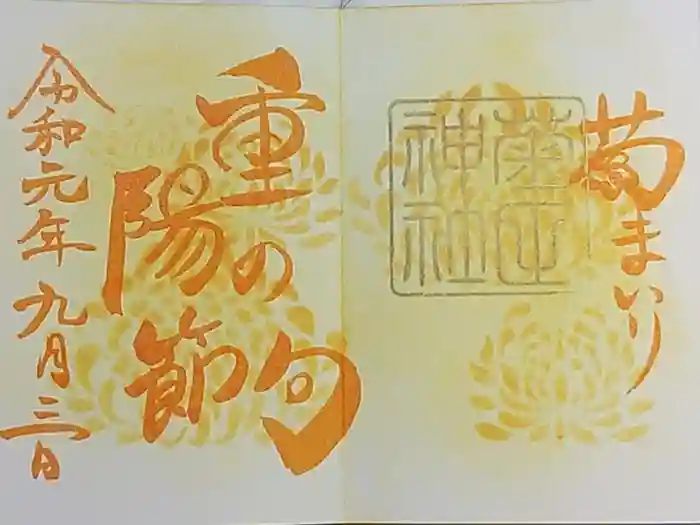 菊まいり
神社
重陽の節句
令和元年九月三日